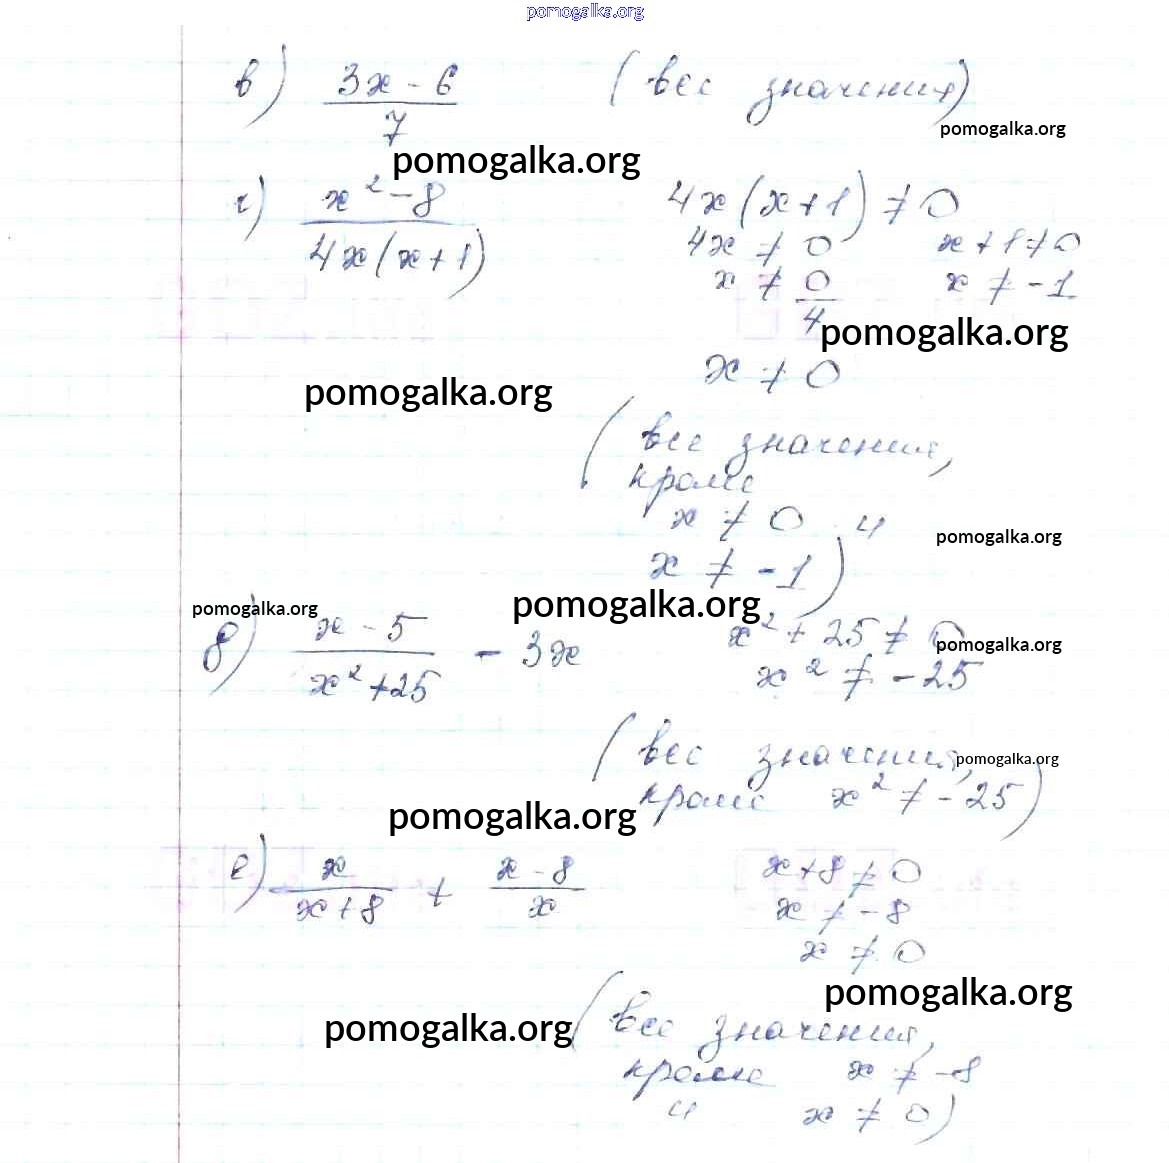 pomogalka.org
в) (3x - 6)/7 (все значения)
pomogalka.org
pomogalka.org
г) (x² - 8)/(4x(x+1)) 4x(x+1) ≠ 0
4x ≠ 0 x+1≠0
x ≠ 0/4 x ≠ -1
pomogalka.org
x ≠ 0
pomogalka.org
(все значения,
кроме
x ≠ 0 и
pomogalka.org
x ≠ -1)
pomogalka.org pomogalka.org
д) (x - 5)/(x²+25) - 3x x² + 25 ≠ 0
pomogalka.org
x² ≠ -25
(все значения,
pomogalka.org
кроме x² ≠ -25)
pomogalka.org
е) x/(x+8) + (x - 8)/x x+8 ≠ 0
x ≠ -8
x ≠ 0
pomogalka.org
pomogalka.org
(все значения,
кроме x ≠ -8
и x ≠ 0)